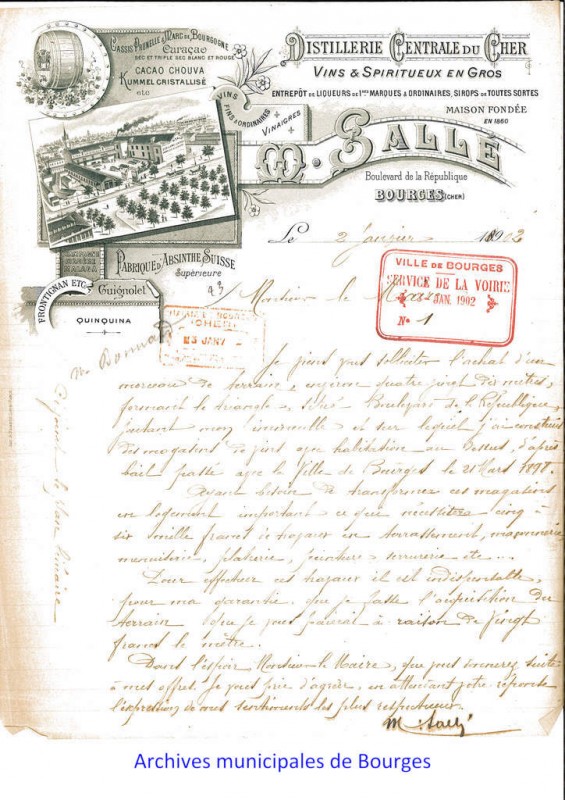 Cassis Prunelle & Marc de Bourgogne
Curaçao
SEC ET TRIPLE SEC BLANC ET ROUGE
CACAO CHOUVA
KUMMEL CRISTALLISÉ
etc
DISTILLERIE CENTRALE DU CHER
VINS & SPIRITUEUX EN GROS
ENTREPÔT DE LIQUEURS DE 1res MARQUES & ORDINAIRES, SIROPS DE TOUTES SORTES
VINS
FINS & ORDINAIRES
VINAIGRES
MAISON FONDÉE
EN 1860
M. SALLÉ
Boulevard de la République
BOURGES (CHER)
MADÈRE
MALAGA
FABRIQUE D'ABSINTHE SUISSE
Supérieure
FRONTIGNAN ETC
Guignolet
QUINQUINA
Le 2 Janvier 1902
VILLE DE BOURGES
SERVICE DE LA VOIRIE
JAN. 1902
No 1
Monsieur le Maire
3 JANV
Je viens vous solliciter l'achat d'un
morceau de terrain, environ quatre vingt dix mètres,
formant le triangle, situé Boulevard de la République,
joignant mon immeuble et sur lequel j'ai construit
des magasins de vins avec habitation au dessus, d'après
bail passé avec la Ville de Bourges le 21 Mars 1898.
Ayant besoin de transformer ces magasins
en logement important ce que nécessitera cinq à
six mille francs de travaux en terrassement, maçonnerie
menuiserie, platrerie, peinture serrurerie etc...
Pour effectuer ces travaux il est indispensable,
pour ma garantie, que je fasse l'acquisition du
terrain que je vous paierai à raison de vingt
francs le mètre.
Dans l'espoir Monsieur le Maire, que vous donnerez suite
à mes offres. Je vous prie d'agréer, en attendant votre réponse
l'expression de mes sentiments les plus respectueux.
M Sallé
M. Bonnard
Archives municipales de Bourges